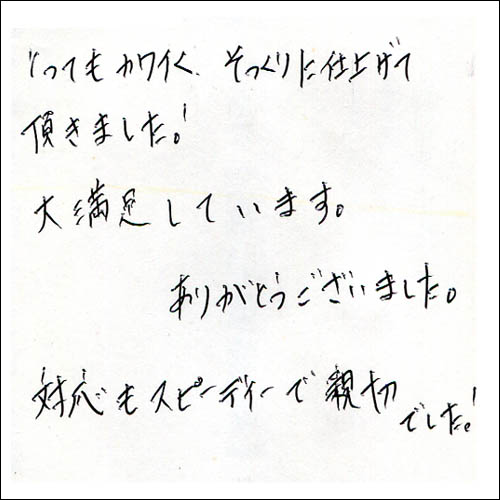 とってもカワイく、そっくりに仕上げて
頂きました!
大満足しています。
ありがとうございました。
対応もスピーディーで親切
でした!